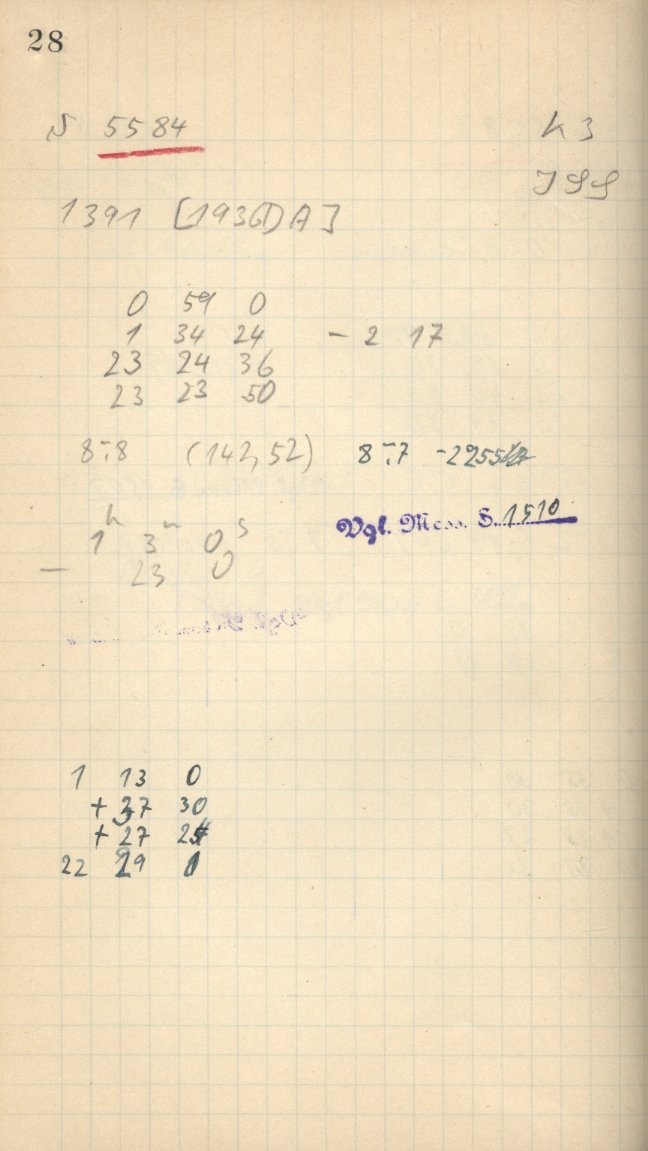 28
N 5584 K 3
1391 [1936 DA] JSS
0 59 0
1 34 24 - 2 17
23 24 36
23 23 50
8.8 (142,52) 8.7
1h 3m 0s Vgl. Mess. S. 1510
- 23 0
1 13 0
+ 37 30
+ 27
22 29 1